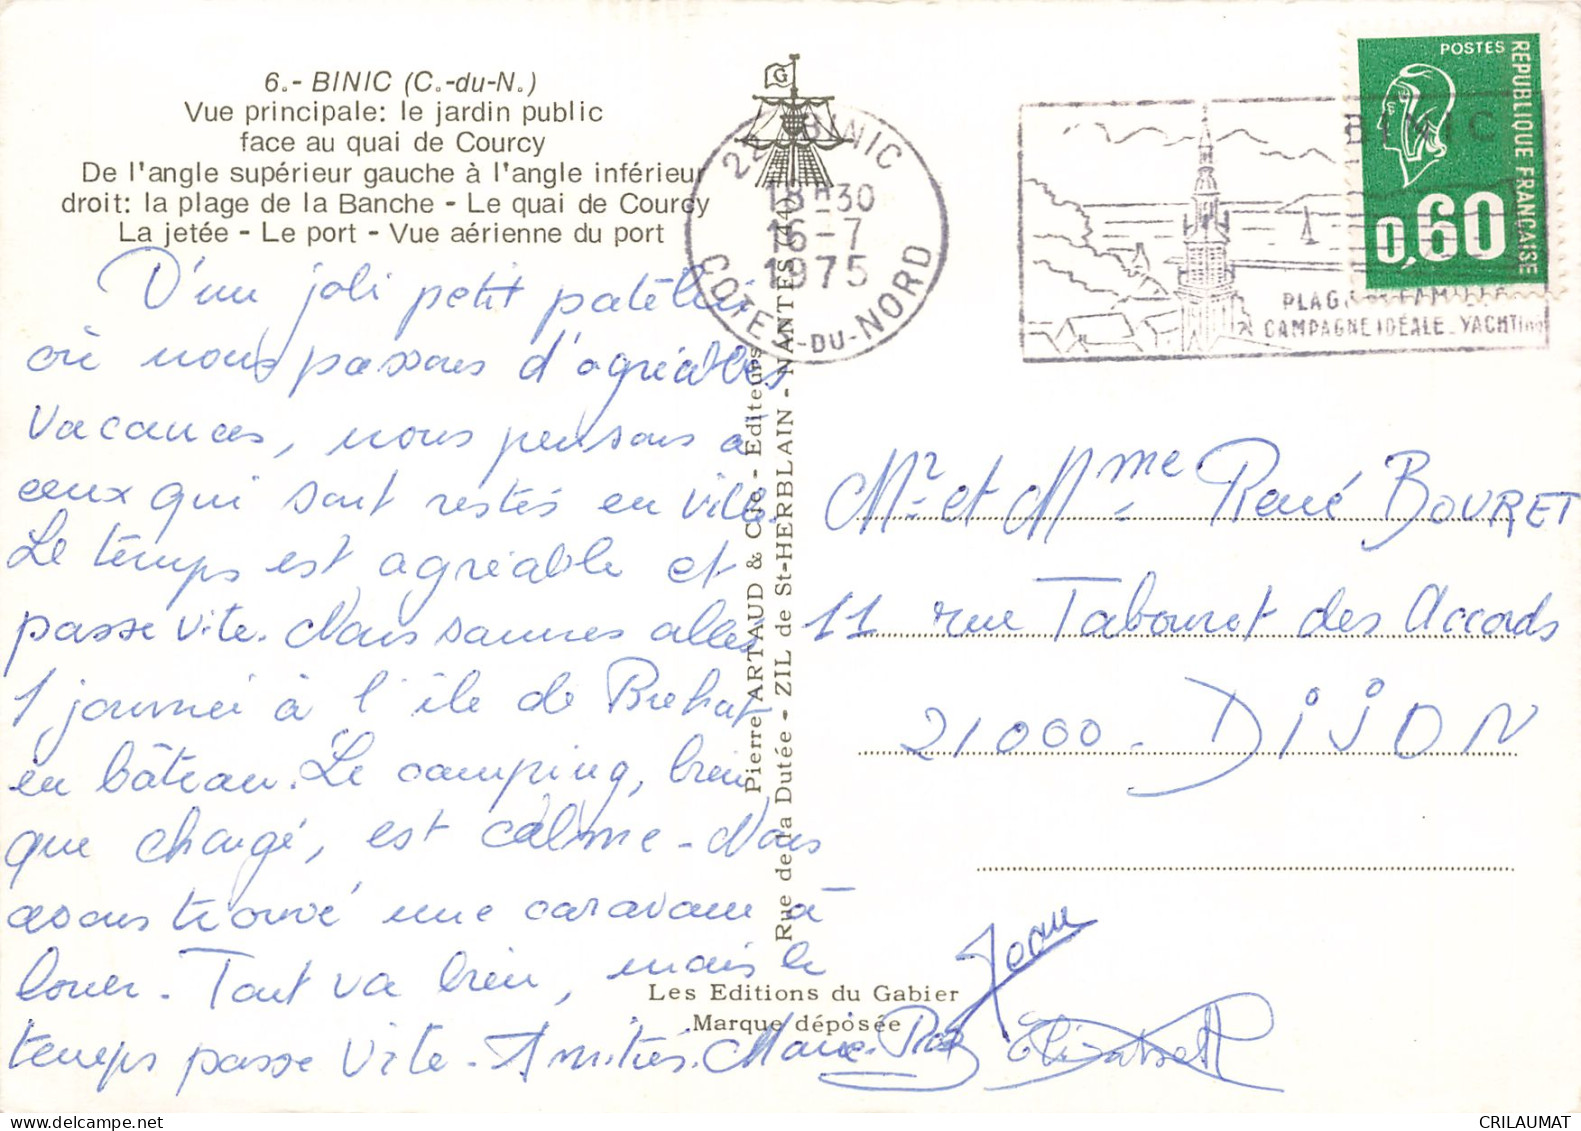 6.- BINIC (C.-du-N.)
Vue principale: le jardin public
face au quai de Courcy
De l'angle supérieur gauche à l'angle inférieur
droit: la plage de la Banche - Le quai de Courcy
La jetée - Le port - Vue aérienne du port
G
22 BINIC
18H30
16-7
1975
COTES-DU-NORD
BINIC
PLAGE FAMILLE
CAMPAGNE IDÉALE. YACHTING
POSTES
REPUBLIQUE FRANÇAISE
0,60
D'un joli petit patelin
où nous passons d'agréables
vacances, nous pensons à
ceux qui sont restés en ville.
Le temps est agréable et
passe vite. Nous sommes allés
1 journée à l'île de Brehat
en bâteau. Le camping, bien
que chargé, est calme - Nous
avons trouvé une caravane à
louer. Tout va bien, mais le
temps passe vite. Amitiés. Marie-Rose
Jean
Elizabeth
Pierre ARTAUD & Cie - Editeurs
Rue de la Dutée - ZIL de St-HERBLAIN - NANTES (44)
Les Editions du Gabier
Marque déposée
Mr et Mme René BOURET
11 rue Tabourot des Accords
21000 - DIJON
CRILAUMAT